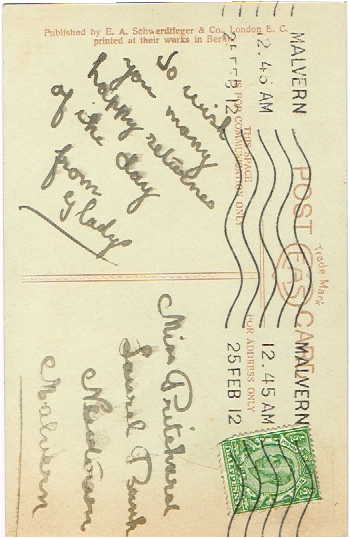 Published by E. A. Schwerdtfeger & Co., London E. C.
printed at their works in Berlin
MALVERN
12.45 AM
25 FEB 12
POST CARD
Trade Mark
EAS
THIS SPACE
IS FOR COMMUNICATION ONLY
FOR ADDRESS ONLY
To wish
you many
happy returns
of the day
from
Gladys
MALVERN
12.45 AM
25 FEB 12
Miss Pritchard
Laurel Bank
Newtown
Malvern
HALFPENNY